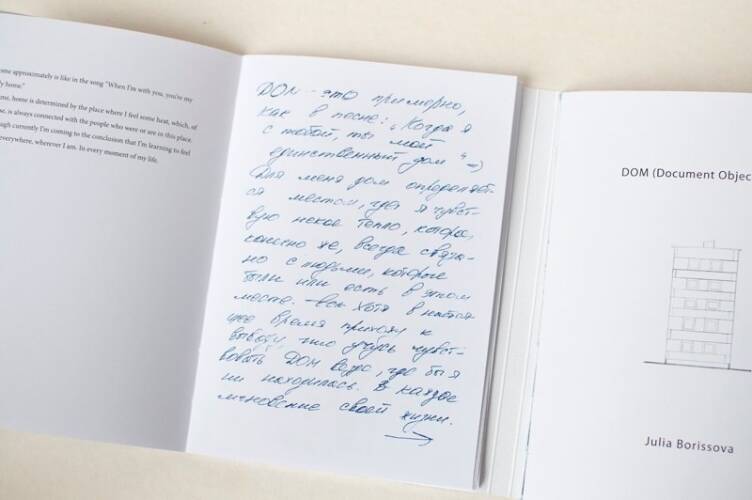 ome approximately is like in the song "When I'm with you, you're my
ly home."
me, home is determined by the place where I feel some heat, which, of
se, is always connected with the people who were or are in this place.
ough currently I'm coming to the conclusion that I'm learning to feel
everywhere, wherever I am. In every moment of my life.
ДОМ - это примерно,
как в песне: „Когда я
с тобой, ты мой
единственный дом"
Для меня дом определяет-
ся местом, где я чувст-
вую некое тепло, которое,
конечно же, всегда связа-
но с людьми, которые
были или есть в этом
месте. Хотя в настоя-
щее время прихожу к
выводу, что учусь чувст-
вовать ДОМ везде, где бы я
ни находилась. В каждое
мгновение своей жизни.
DOM (Document Objec
Julia Borissova